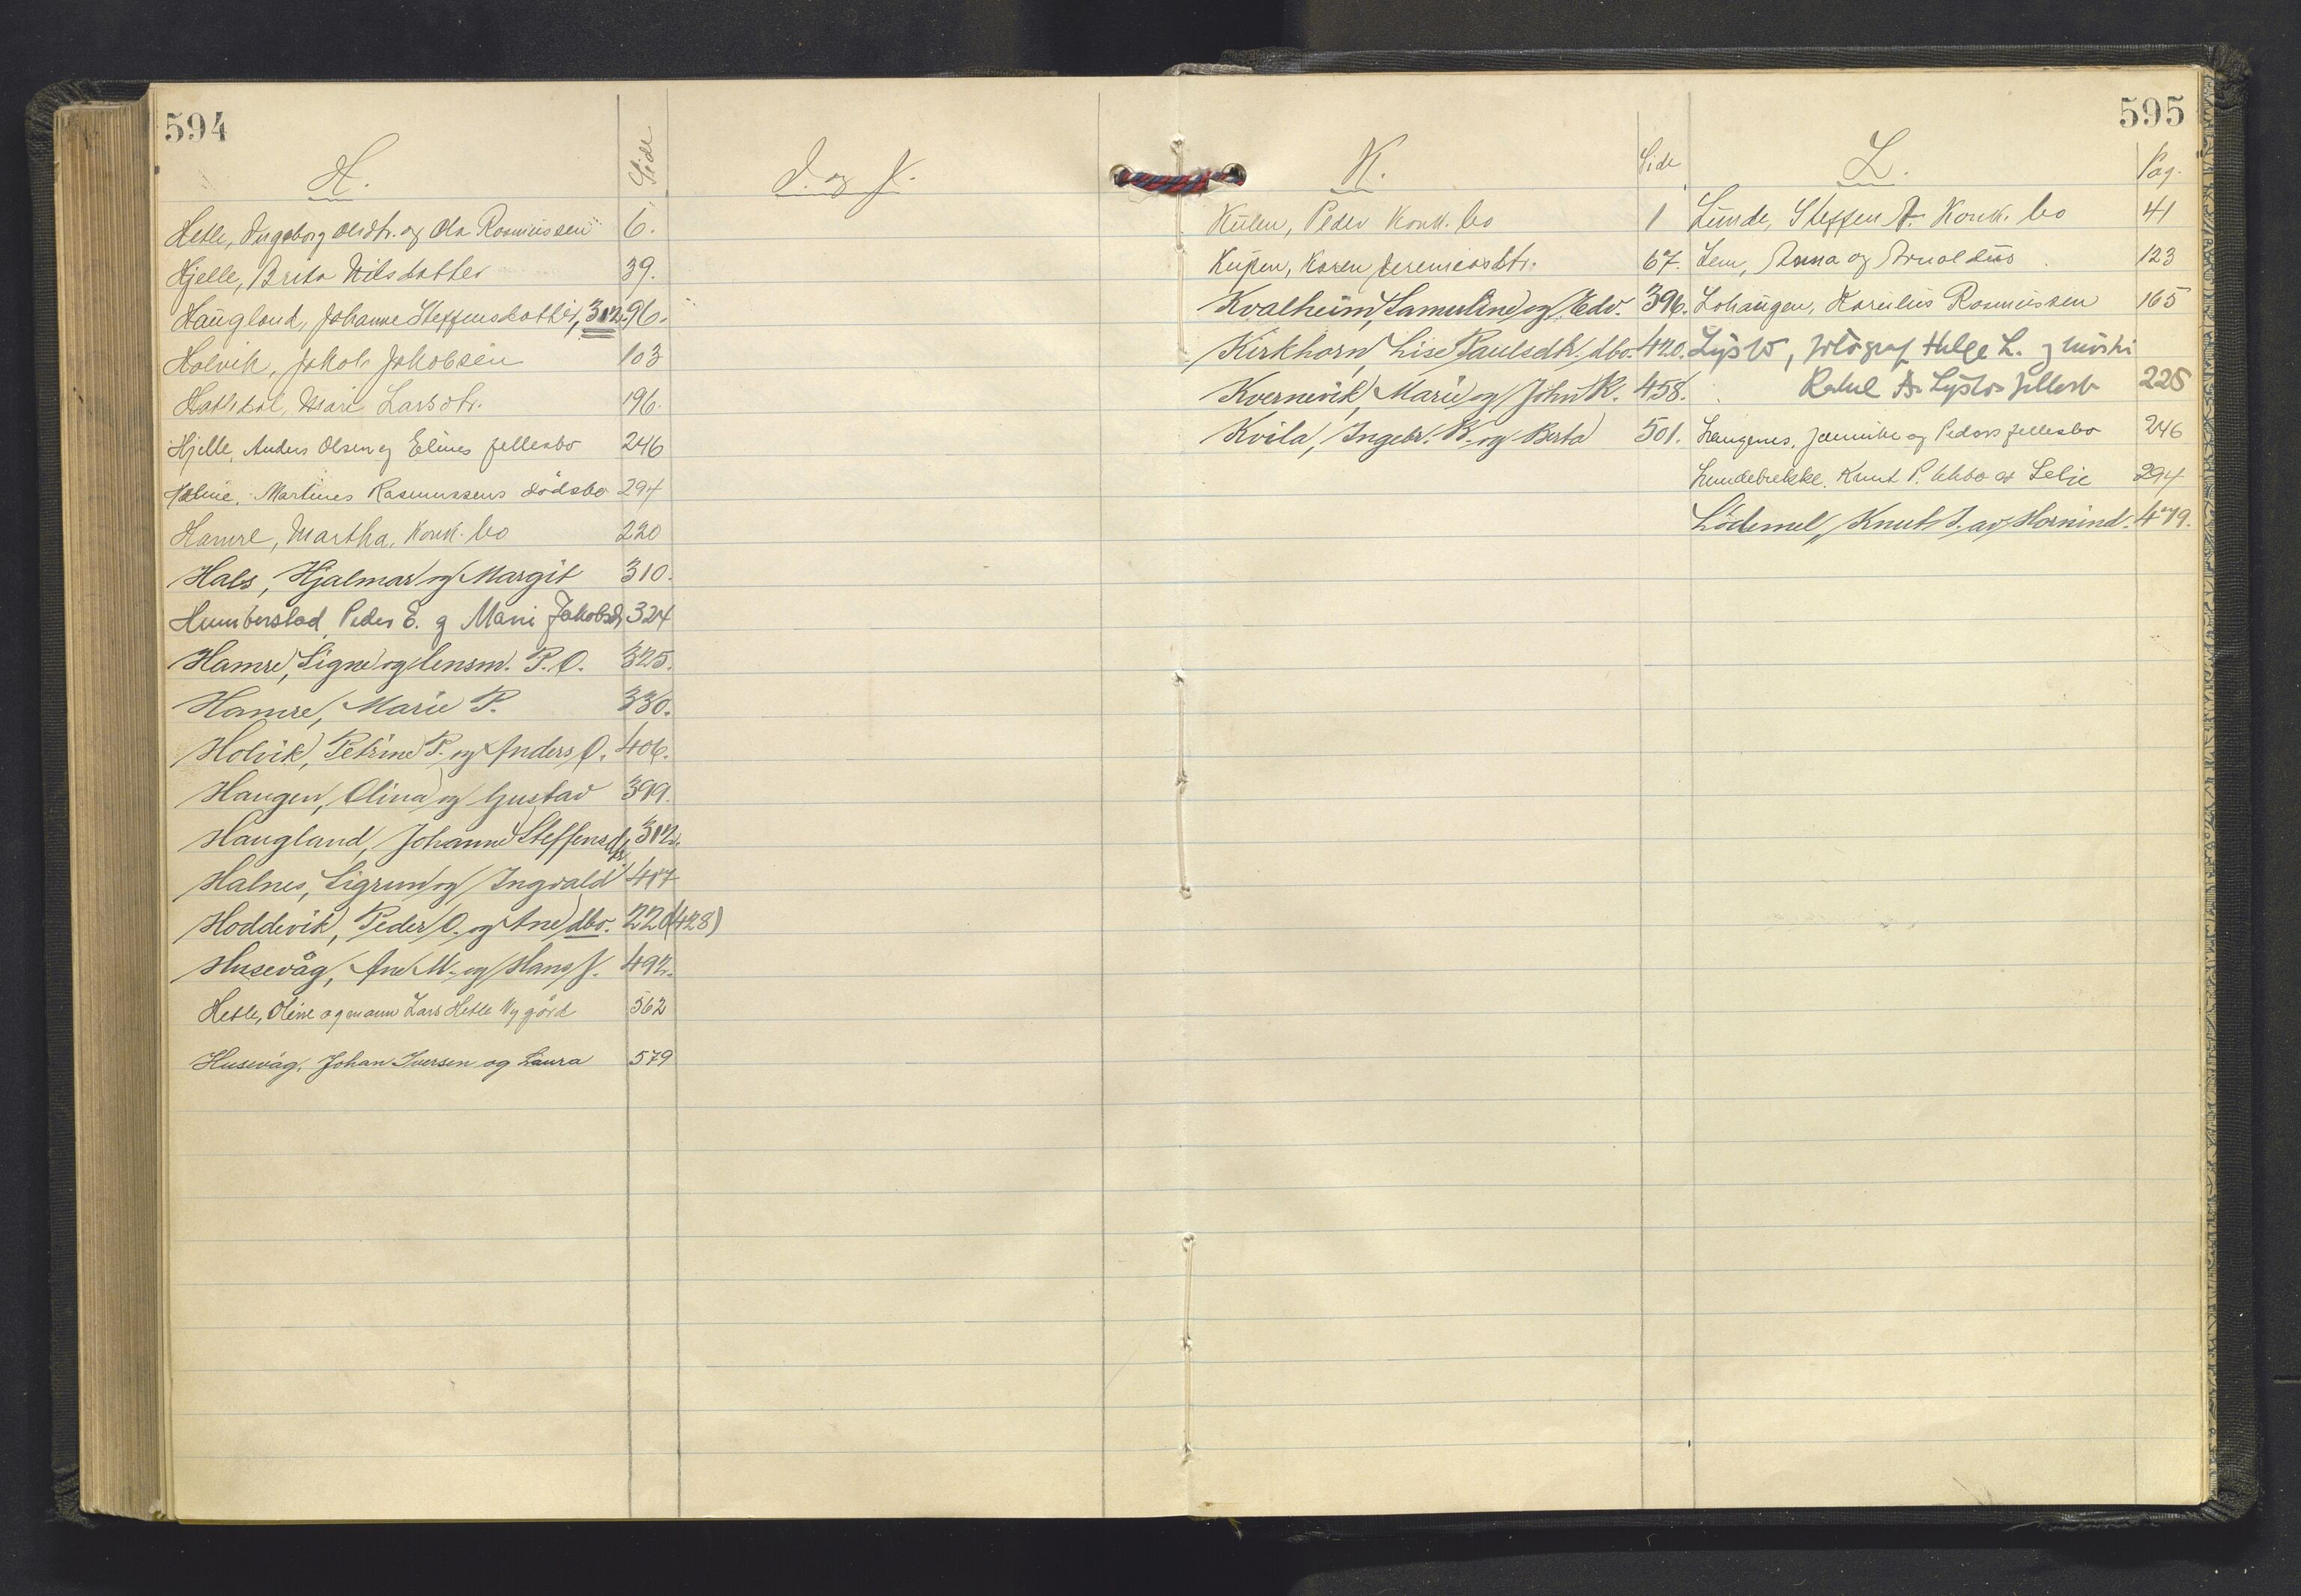 594
H.
Side
Hetle, Ingeborg Olsdtr. og Ola Rasmussen 6.
Hjelle, Brita Nilsdatter 39.
Haugland, Johanne Steffensdatter, 312. 96.
Holvik, Jakob Jakobsen 103
Mari Larsdtr. 196.
Hjelle, Anders Olsen og Elines fellesbo 246
Martines Rasmussens dödsbo 294
Hamre, Martha, Konk. bo 220
Hals, Hjalmar og Margit 310.
Humberstad, Peder E. og Marie Jakobsd. 324
Hamre, Signe og lensm. P. O. 325.
Hamre, Marie P. 330.
Holvik, Petrine P. og Anders O. 406.
Haugen, Olina og Gustav 399.
Haugland, Johanne Steffensdtr. 312.
Halnes, Sigrun og Ingvald 417
Hoddevik, Peder O. og Ane dbo. 220 (428)
Husevåg, Ane M. og Hans J. 492.
Hetle, Oline og mann Lars Hetle Nygård 562
Husevåg, Johan Iversen og Laura 579
I. og J.
595
K.
Side
Kulen, Peder Konk. bo 1
Kupen, Karen Jeremiasdtr. 67.
Kvalheim, Samuline og Edv. 396.
Kirkhorn, Lise Paulsdtr. dbo. 420.
Kvernevik, Marie og John R. 458.
Kvila, Ingebr. B. og Berta 501.
L.
Pag.
Lunde, Steffen A. Konk. bo 41
Lem, Anna og Arnoldus 123
Lohaugen, Kornelius Rasmussen 165
Lystö, fotograf Helge L. og hustru
Rakel A. Lystös fellesb 225
Langenes, Jennike og Peders fellesbo 246
Lundebrekke, Knut P. av Selje 294
Lödemel, Knut J. av Hornind. 479.